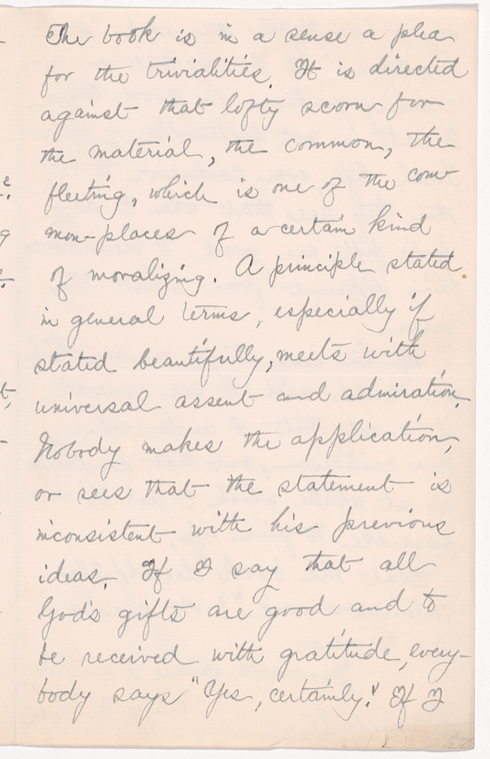 The book is in a sense a plea
for the trivialities. It is directed
against that lofty scorn for
the material, the common, the
fleeting, which is one of the com
mon-places of a certain kind
of moralizing. A principle stated
in general terms, especially if
stated beautifully, meets with
universal assent and admiration.
Nobody makes the application,
or sees that the statement is
inconsistent with his previous
ideas. If I say that all
God's gifts are good and to
be received with gratitude, every-
body says "Yes, certainly." If I